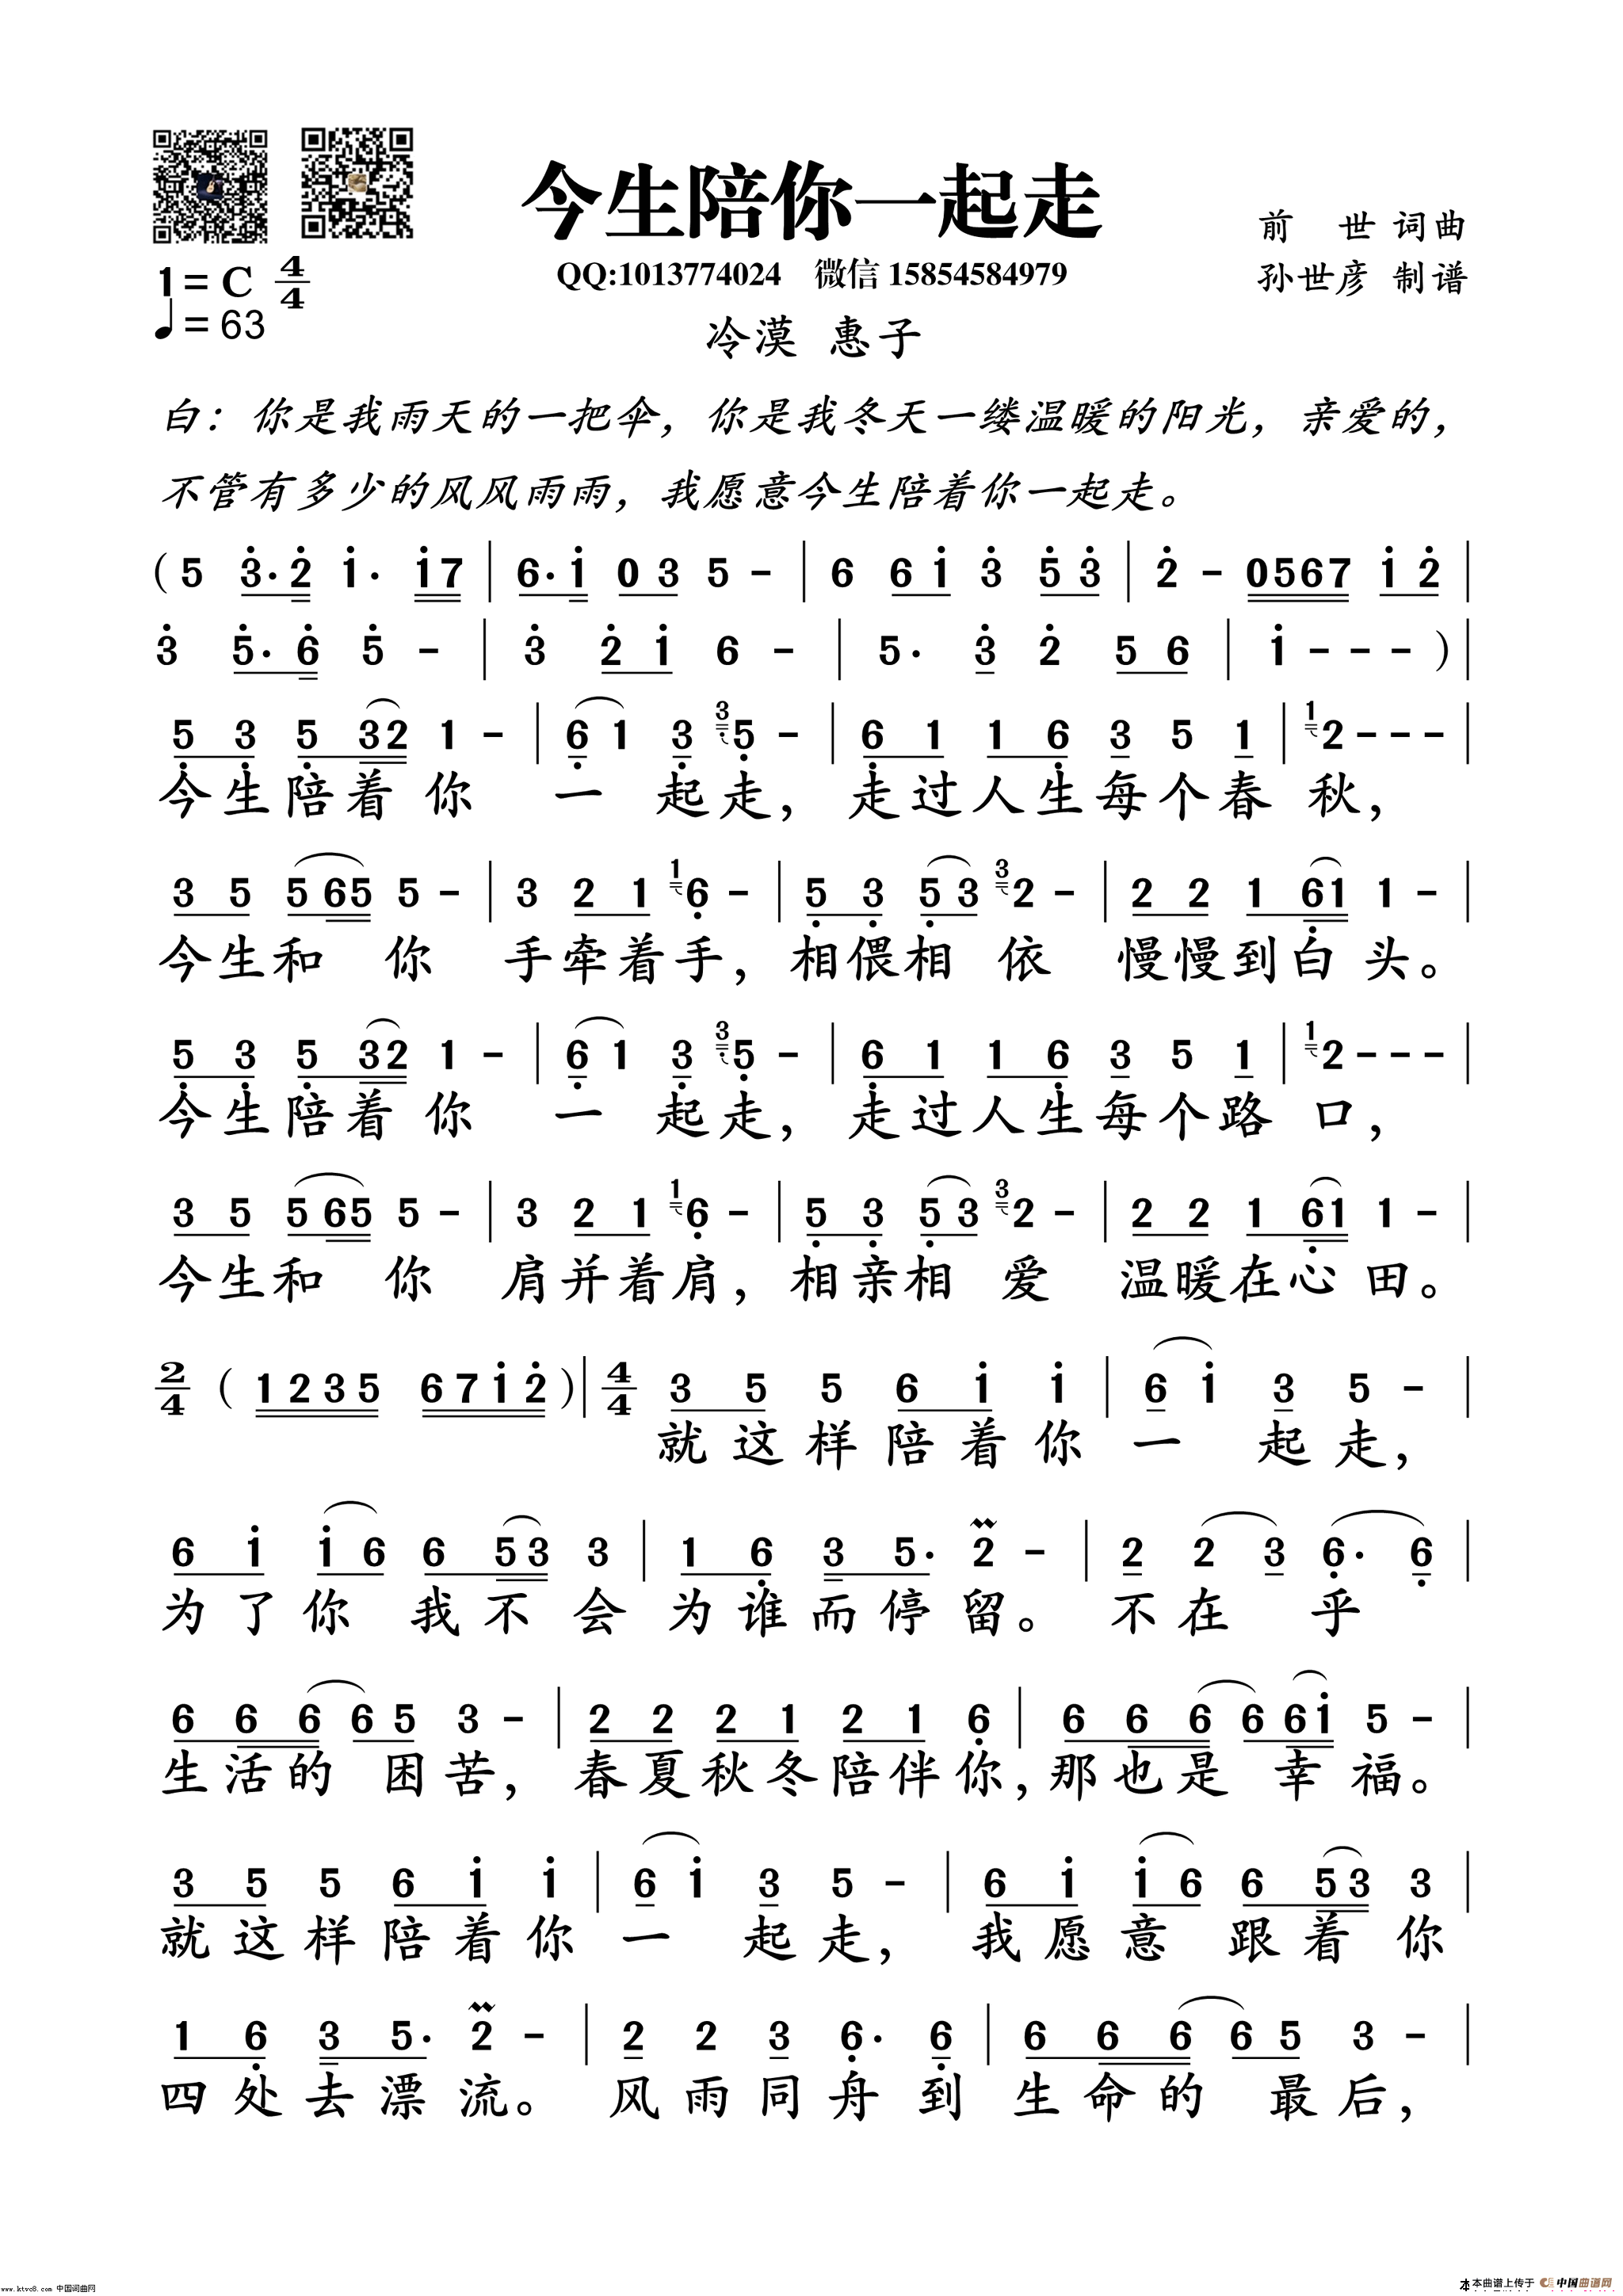 今生陪你一起走
前 世 词曲
QQ:1013774024 微信 15854584979
孙世彦 制谱
1=C 4/4
♩=63
冷漠 惠子
白：你是我雨天的一把伞，你是我冬天一缕温暖的阳光，亲爱的，
不管有多少的风风雨雨，我愿意今生陪着你一起走。
( 5 3·2 1· 17 | 6·1 03 5 - | 6 61 3 53 | 2 - 0567 12 |
3 5·6 5 - | 3 21 6 - | 5· 3 2 56 | 1 - - - ) |
5 3 5 32 1 - | 6 1 3 3 5 - | 6 1 1 6 3 5 1 | 1 2 - - - |
今生陪着你 一 起走，走过人生每个春 秋，
3 5 5 65 5 - | 3 2 1 1 6 - | 5 3 5 3 3 2 - | 2 2 1 61 1 - |
今生和 你 手牵着手，相偎相 依 慢慢到白头。
5 3 5 32 1 - | 6 1 3 3 5 - | 6 1 1 6 3 5 1 | 1 2 - - - |
今生陪着你 一 起走，走过人生每个路 口，
3 5 5 65 5 - | 3 2 1 1 6 - | 5 3 5 3 3 2 - | 2 2 1 61 1 - |
今生和 你 肩并着肩，相亲相 爱 温暖在心田。
2/4 ( 1235 6712 ) | 4/4 3 5 5 6 1 1 | 6 1 3 5 - |
就这样陪着你 一 起走，
6 1 1 6 6 53 3 | 1 6 3 5· 2 - | 2 2 3 6· 6 |
为了你 我不会 为谁而停留。 不在 乎
6 6 6 6 5 3 - | 2 2 2 1 2 1 6 | 6 6 6 6 61 5 - |
生活的 困苦，春夏秋冬陪伴你，那也是 幸 福。
3 5 5 6 1 1 | 6 1 3 5 - | 6 1 1 6 6 53 3 |
就这样陪着你 一 起走，我愿意 跟着你
1 6 3 5· 2 - | 2 2 3 6· 6 | 6 6 6 6 5 3 - |
四处去漂流。 风雨同舟到 生命的 最后，
www.ktvc8.com 中国词曲网
本本曲谱上传于 中国曲谱网